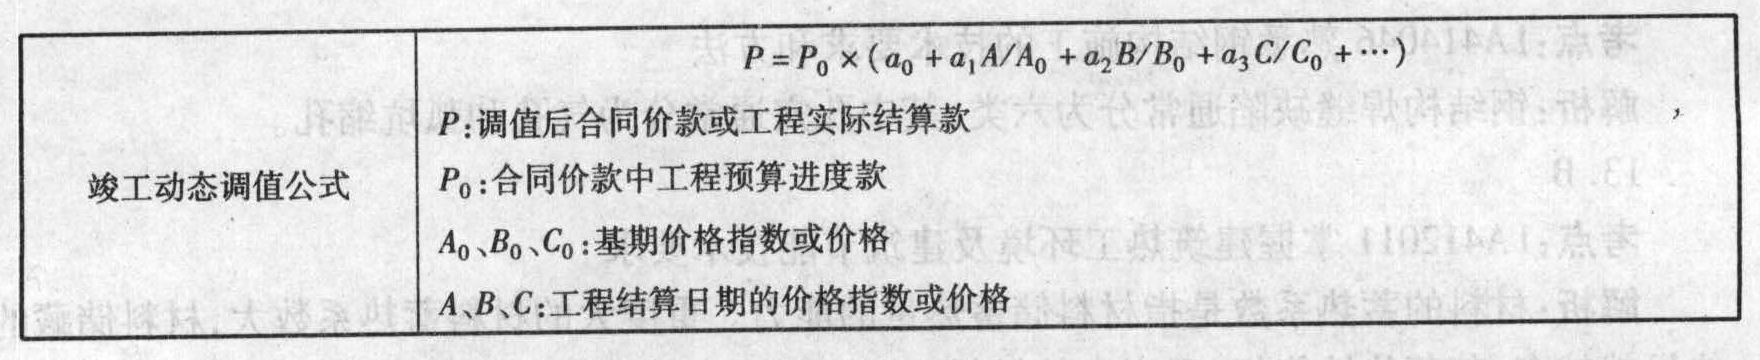 P = P₀ × (a₀ + a₁A/A₀ + a₂B/B₀ + a₃C/C₀ + …)
P:调值后合同价款或工程实际结算款
竣工动态调值公式
P₀:合同价款中工程预算进度款
A₀、B₀、C₀:基期价格指数或价格
A、B、C:工程结算日期的价格指数或价格